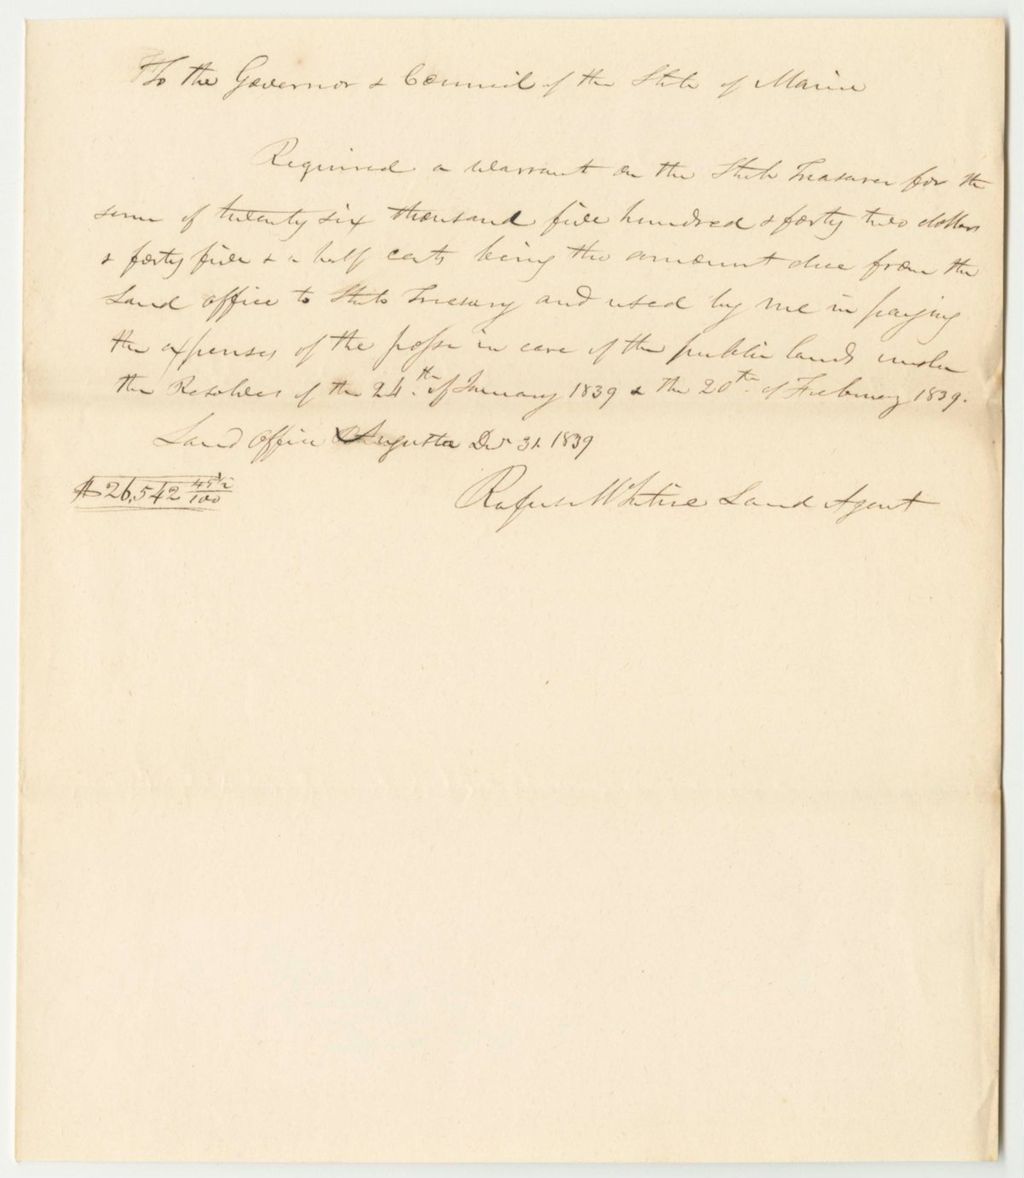 To the Governor & Council of the State of Maine
Required a warrant on the State Treasurer for the
sum of twenty six thousand five hundred & forty two dollars
& forty five & a half cents being the amount due from the
Land office to State Treasury and used by me in paying
the expenses of the posse in care of the public lands under
the Resolves of the 24th of January 1839 & the 20th of February 1839.
Land Office Augusta Dec 31 1839
$26,542 45½/100
Rufus McIntire Land Agent